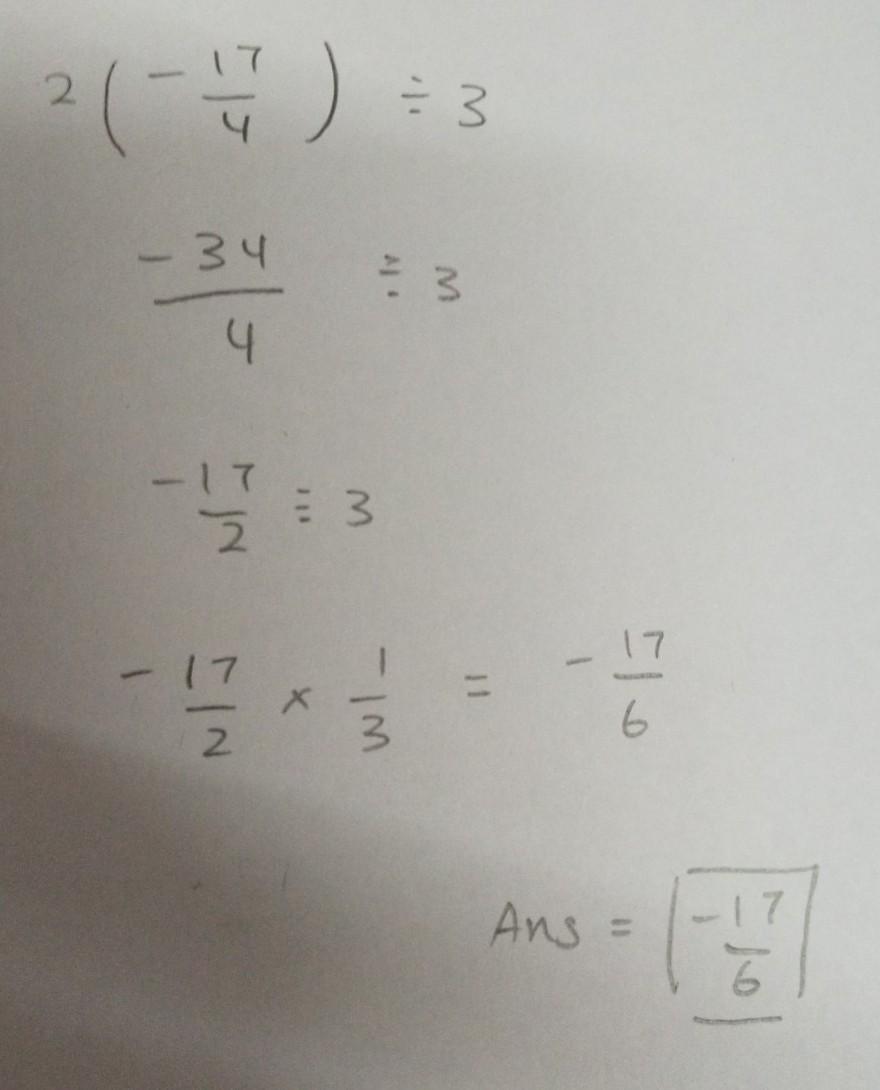 2(-17/4) ÷ 3
-34/4 ÷ 3
-17/2 ÷ 3
-17/2 × 1/3 = -17/6
Ans = -17/6